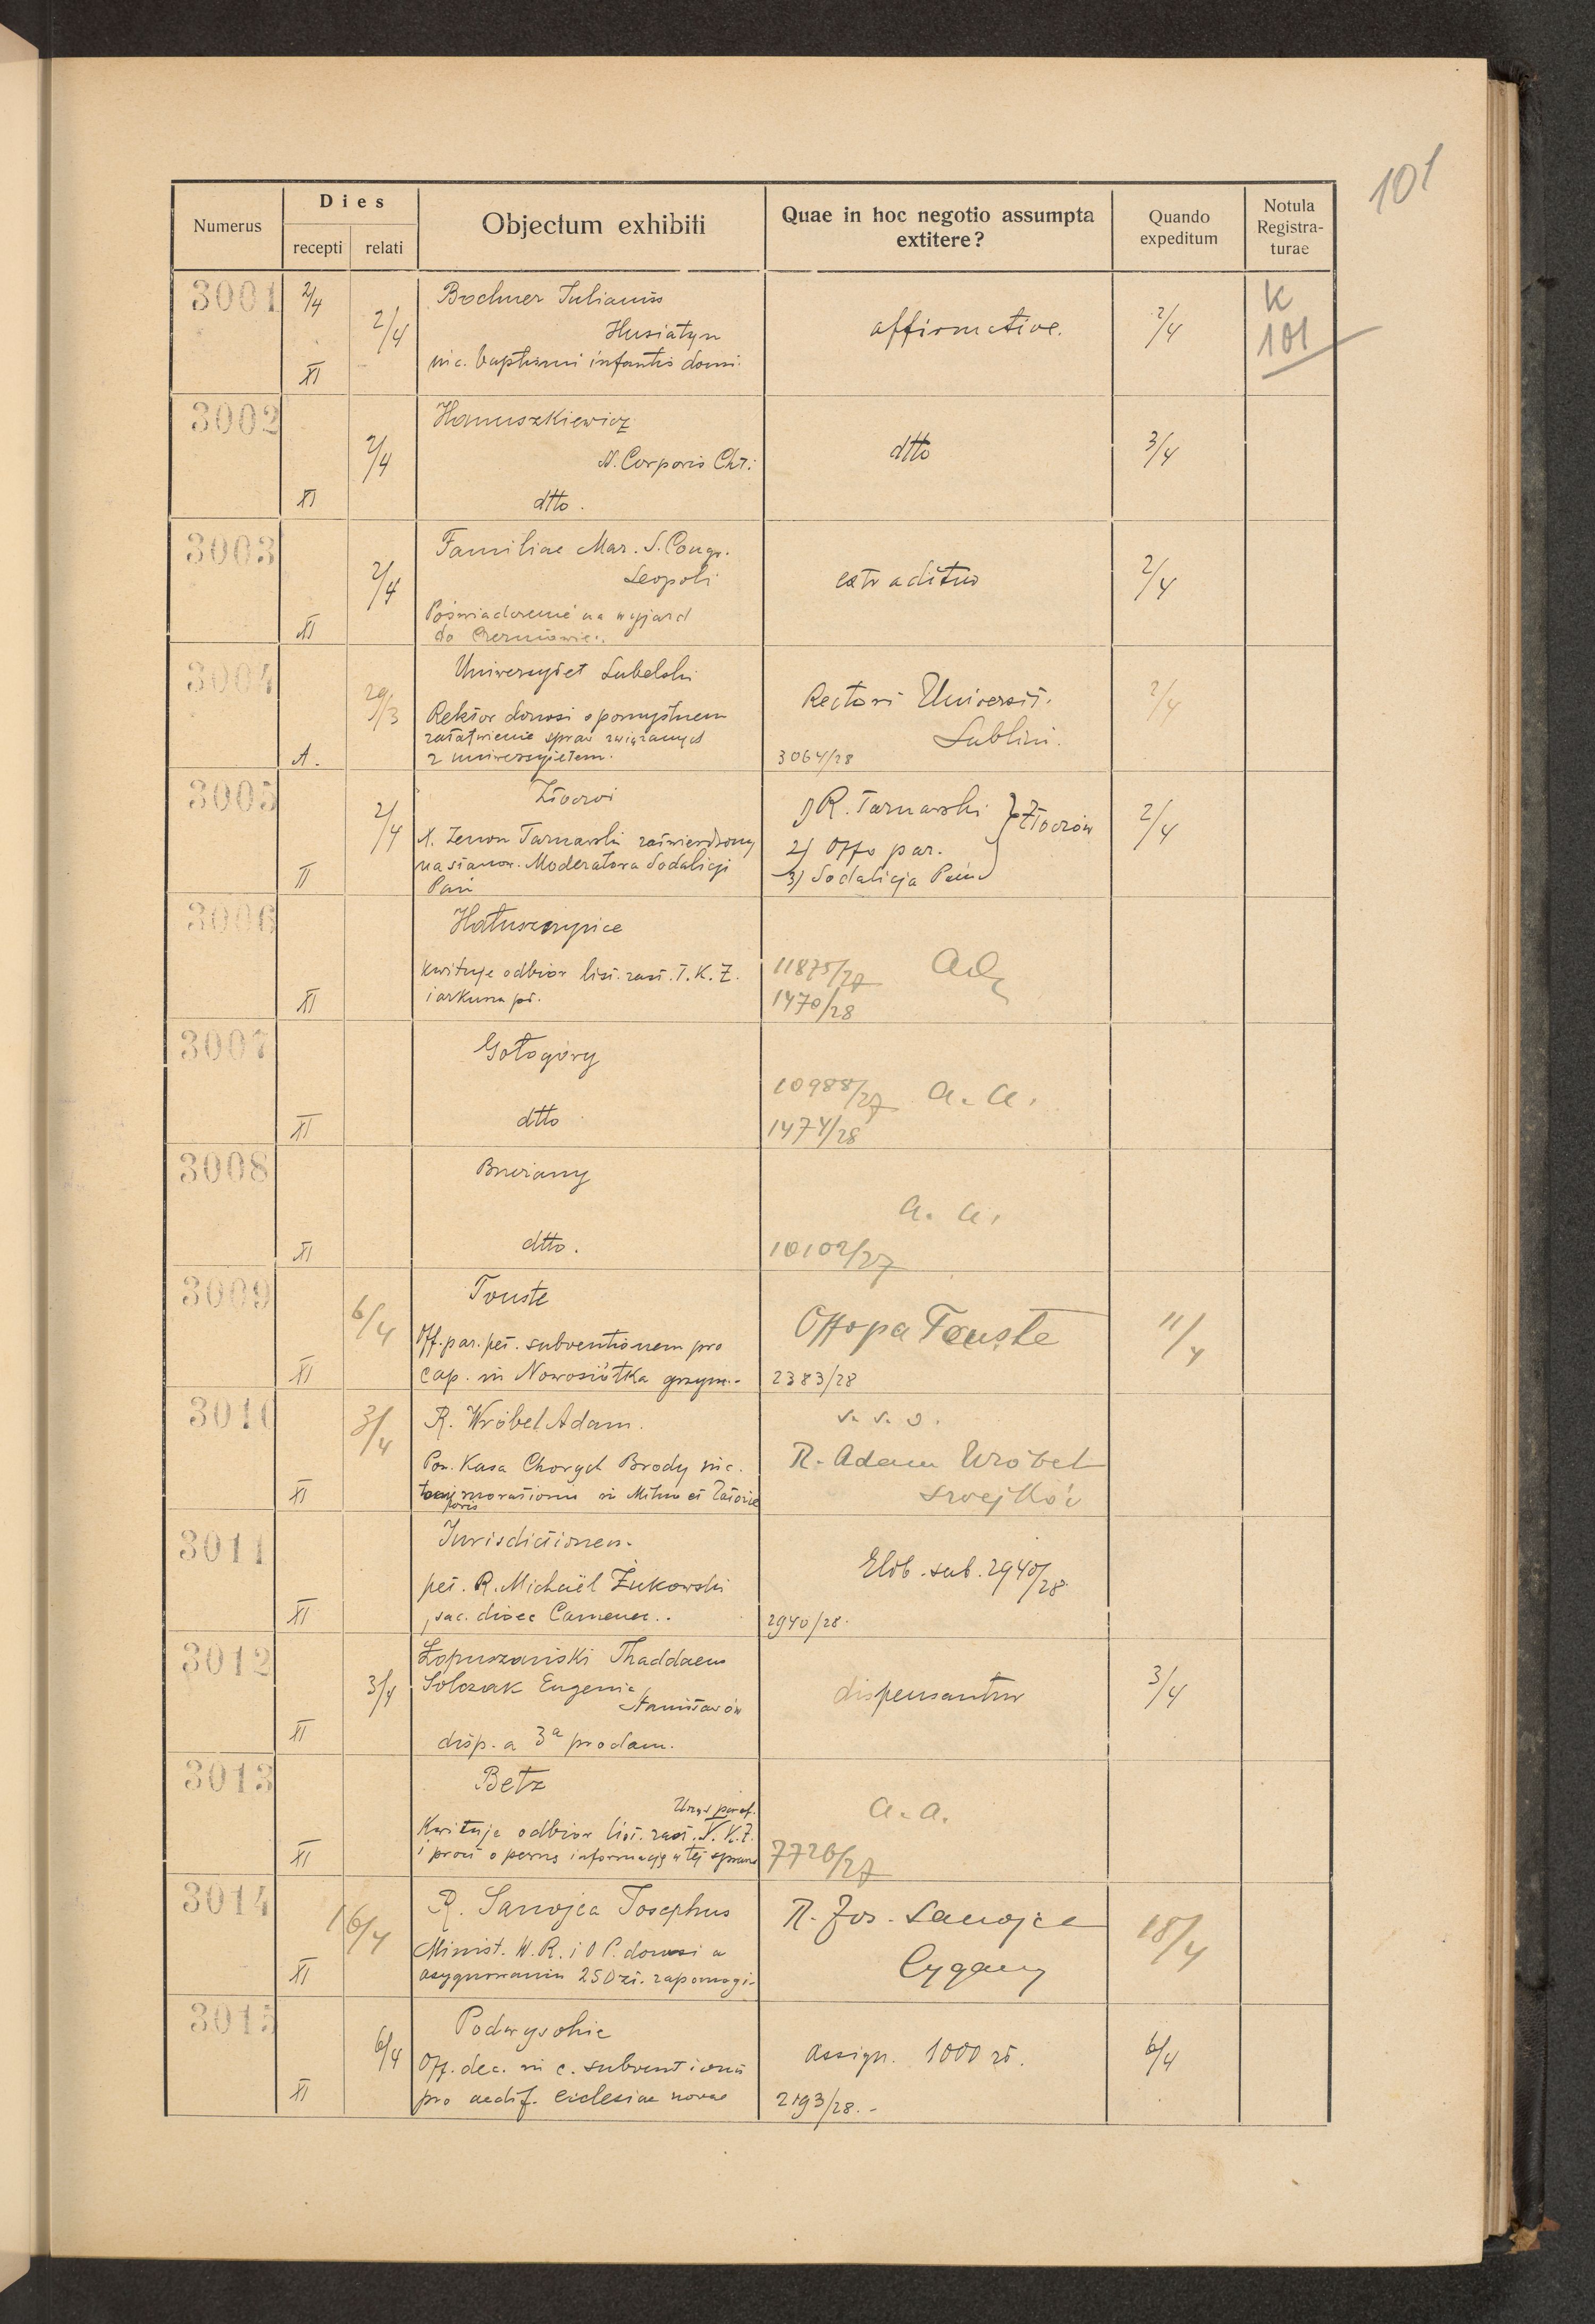 101
Numerus
Dies
recepti
relati
Objectum exhibiti
Quae in hoc negotio assumpta
extitere?
Quando
expeditum
Notula
Registra-
turae
3001
2/4
2/4
XI
Bochner Julianus
Husiatyn
in c. baptismi infantis domi.
affirmative.
2/4
K
101
3002
2/4
XI
Hanuszkiewicz
N. Corporis Chr:
dtto.
dtto
3/4
3003
2/4
XI
Familiae Mar. S. Congr.
Leopoli
Poświadczenie na wyjazd
do Czerniowiec.
extraditur
2/4
3004
29/3
A.
Uniwersytet Lubelski
Rektor donosi o pomyślnem
załatwienie spraw związanych
z uniwersytetem.
Rectori Universit.
Lublini.
3064/28
2/4
3005
2/4
II
Złoczów
X. Zenon Tarnawski zatwierdzony
na stanow. Moderatora Sodalicji
Pań
1) R. Tarnawski
2) Offo par.
3) Sodalicja Pań
Złoczów
2/4
3006
XI
Hałuszczyńce
kwituje odbiór list. zast. T. K. Z.
i arkusza pł.
11875/27
1470/28
3007
XI
Gołogóry
dtto
10988/27
a. a.
1474/28
3008
XI
dtto.
a. a.
10102/27
3009
6/4
XI
Touste
Off. par. pet. subventionem pro
cap. in Nowosiółka grzym.-
Offo pa Touste
2383/28
11/4
3010
3/4
XI
R. Wróbel Adam.
Pow. Kasa Chorych Brody in c.
R. Adam Wróbel
3011
XI
Jurisdictionem.
pet. R. Michaël Żukowski
sac. dioec Camenec..
Elab. sub. 2940/28
2940/28.
3012
3/4
XI
Łopuszański Thaddaeus
Solczak Eugenia
Stanisławów
disp. a 3a proclam.
dispensantur
3/4
3013
XI
Bełz
Urząd paraf.
Kwituje odbiór list. zast. T. K. Z.
i prosi o pewną informację w tej sprawie
a. a.
7726/27
3014
16/4
XI
R. Sanojca Josephus
Minist. W. R. i O P. donosi o
asygnowaniu 250 zł. zapomogi.
R. Jos. Sanojca
Cygany
18/4
3015
6/4
XI
Podwysokie
Off. dec. in c. subventionis
pro aedif. ecclesiae novae
assign. 1000 zł.
2193/28.-
6/4